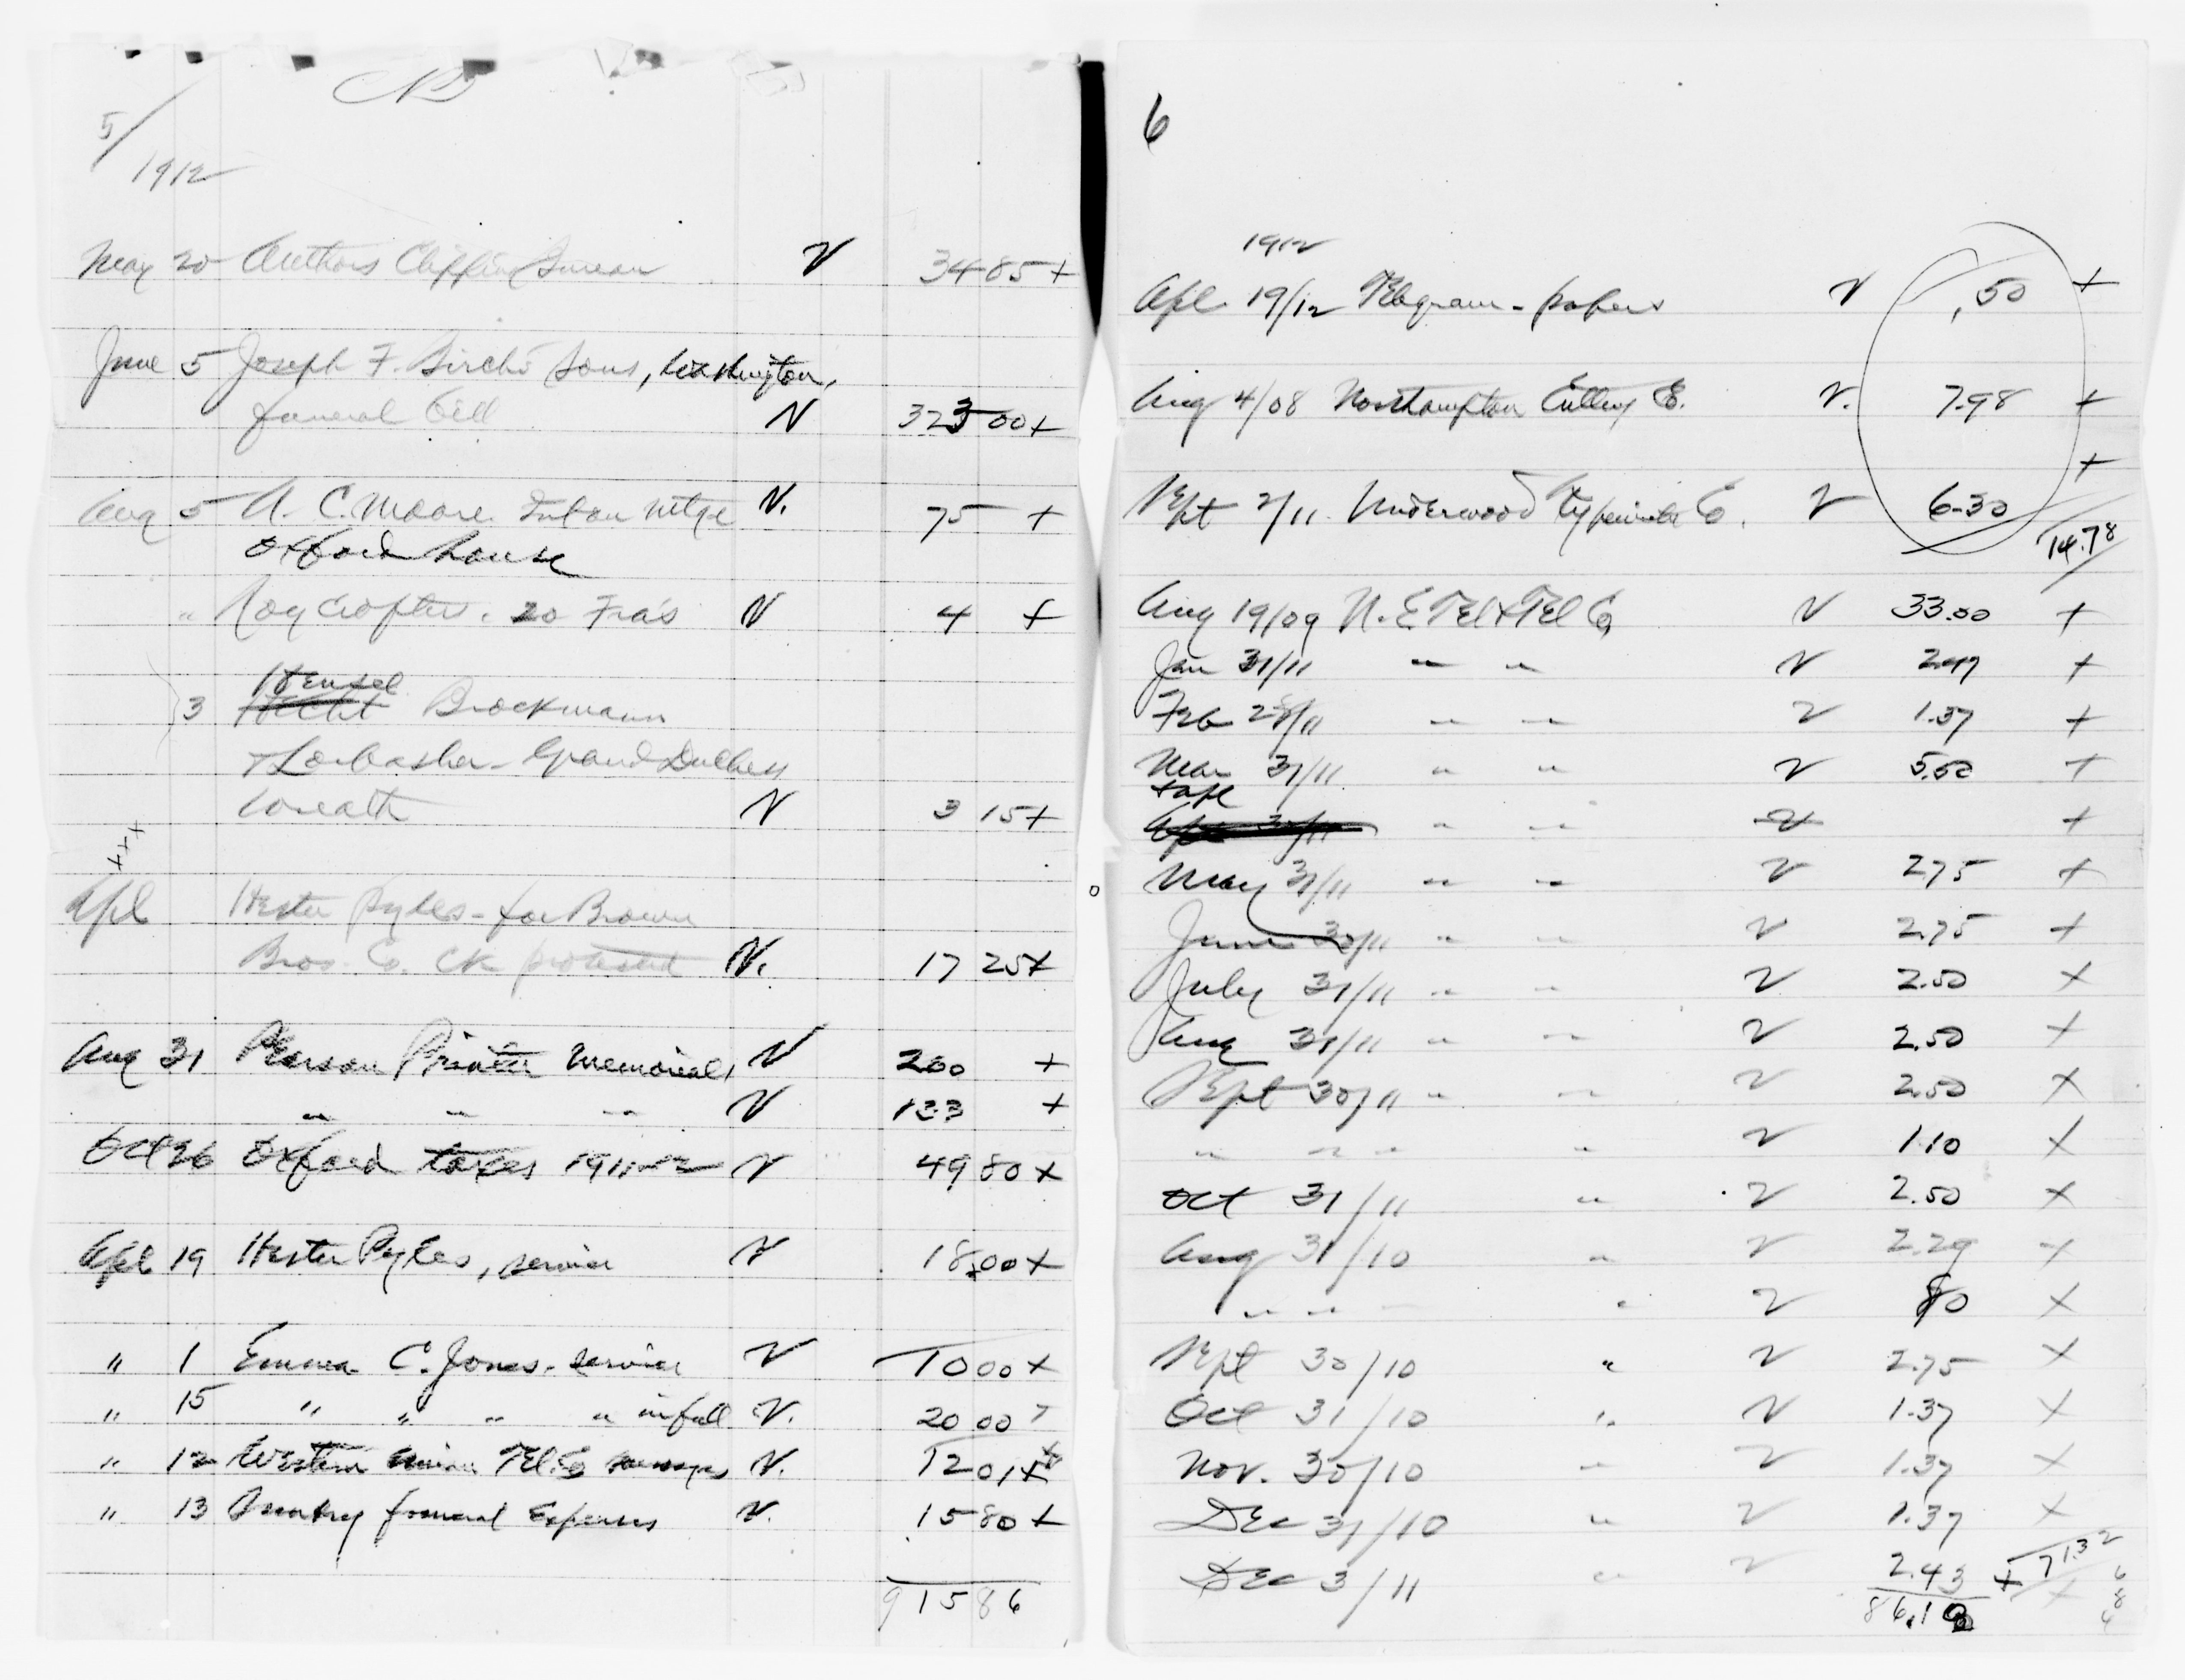 5/
1912
May 20 Authors Clipping Bureau V 34 85 +
June 5 Joseph F. Birch's Sons, Washington,
funeral bill V 323 00 +
Aug 5 A. C. Moore Int on mtge V. 75 +
Oxford house
" Roycrofters. 20 Fra's V 4 +
Hensel
3 Hecht Brockmann
& Lorbasher - Grand Duchess
Wreath V 3 15 +
+++
Apl Hester Pyles - for Brown
Bros. Co. ck protested V. 17 25 +
Aug 31 Pearson Printer Memorial, V 200 +
" " " V 133 +
Oct 26 Oxford taxes 1911-12 V 49 80 +
Apl 19 Hester Pyles, service V 18.00 +
" 1 Emma C. Jones - service V 10 00 +
" 15 " " " " in full V. 20 00 +
" 12 Western Union Tel. Co messages V. 12 01 +
" 13 Sundry funeral Expenses V. 15 80 +
915 86
6
1912
Apl 19/12 Telegram - papers V .50 +
Aug 4/08 Northampton Cutlery Co. V. 7.98 +
+
Sept 2/11 Underwood Typewriter Co. V 6.30
14.78
Aug 19/09 N. E Tel & Tel Co V 33.00 +
Jan 31/11 " " V 2.47 +
Feb 28/11 " " V 1.37 +
Mar 31/11 " " V 5.50 +
+ Apl
Apl 30/11 " " V +
May 31/11 " " V 2.75 +
June 30/11 " " V 2.75 +
July 31/11 " " V 2.50 +
Aug 31/11 " " V 2.50 +
Sept 30/11 " " V 2.50 +
" " " " V 1.10 +
Oct 31/11 " V 2.50 +
Aug 31/10 " V 2.29 +
" " " " V 80 +
Sept 30/10 " V 2.75 +
Oct 31/10 " V 1.37 +
Nov. 30/10 " V 1.37 +
Dec 31/10 " V 1.37 +
71.32
Dec 3/11 " V 2.43 +
86.10
6
8
4